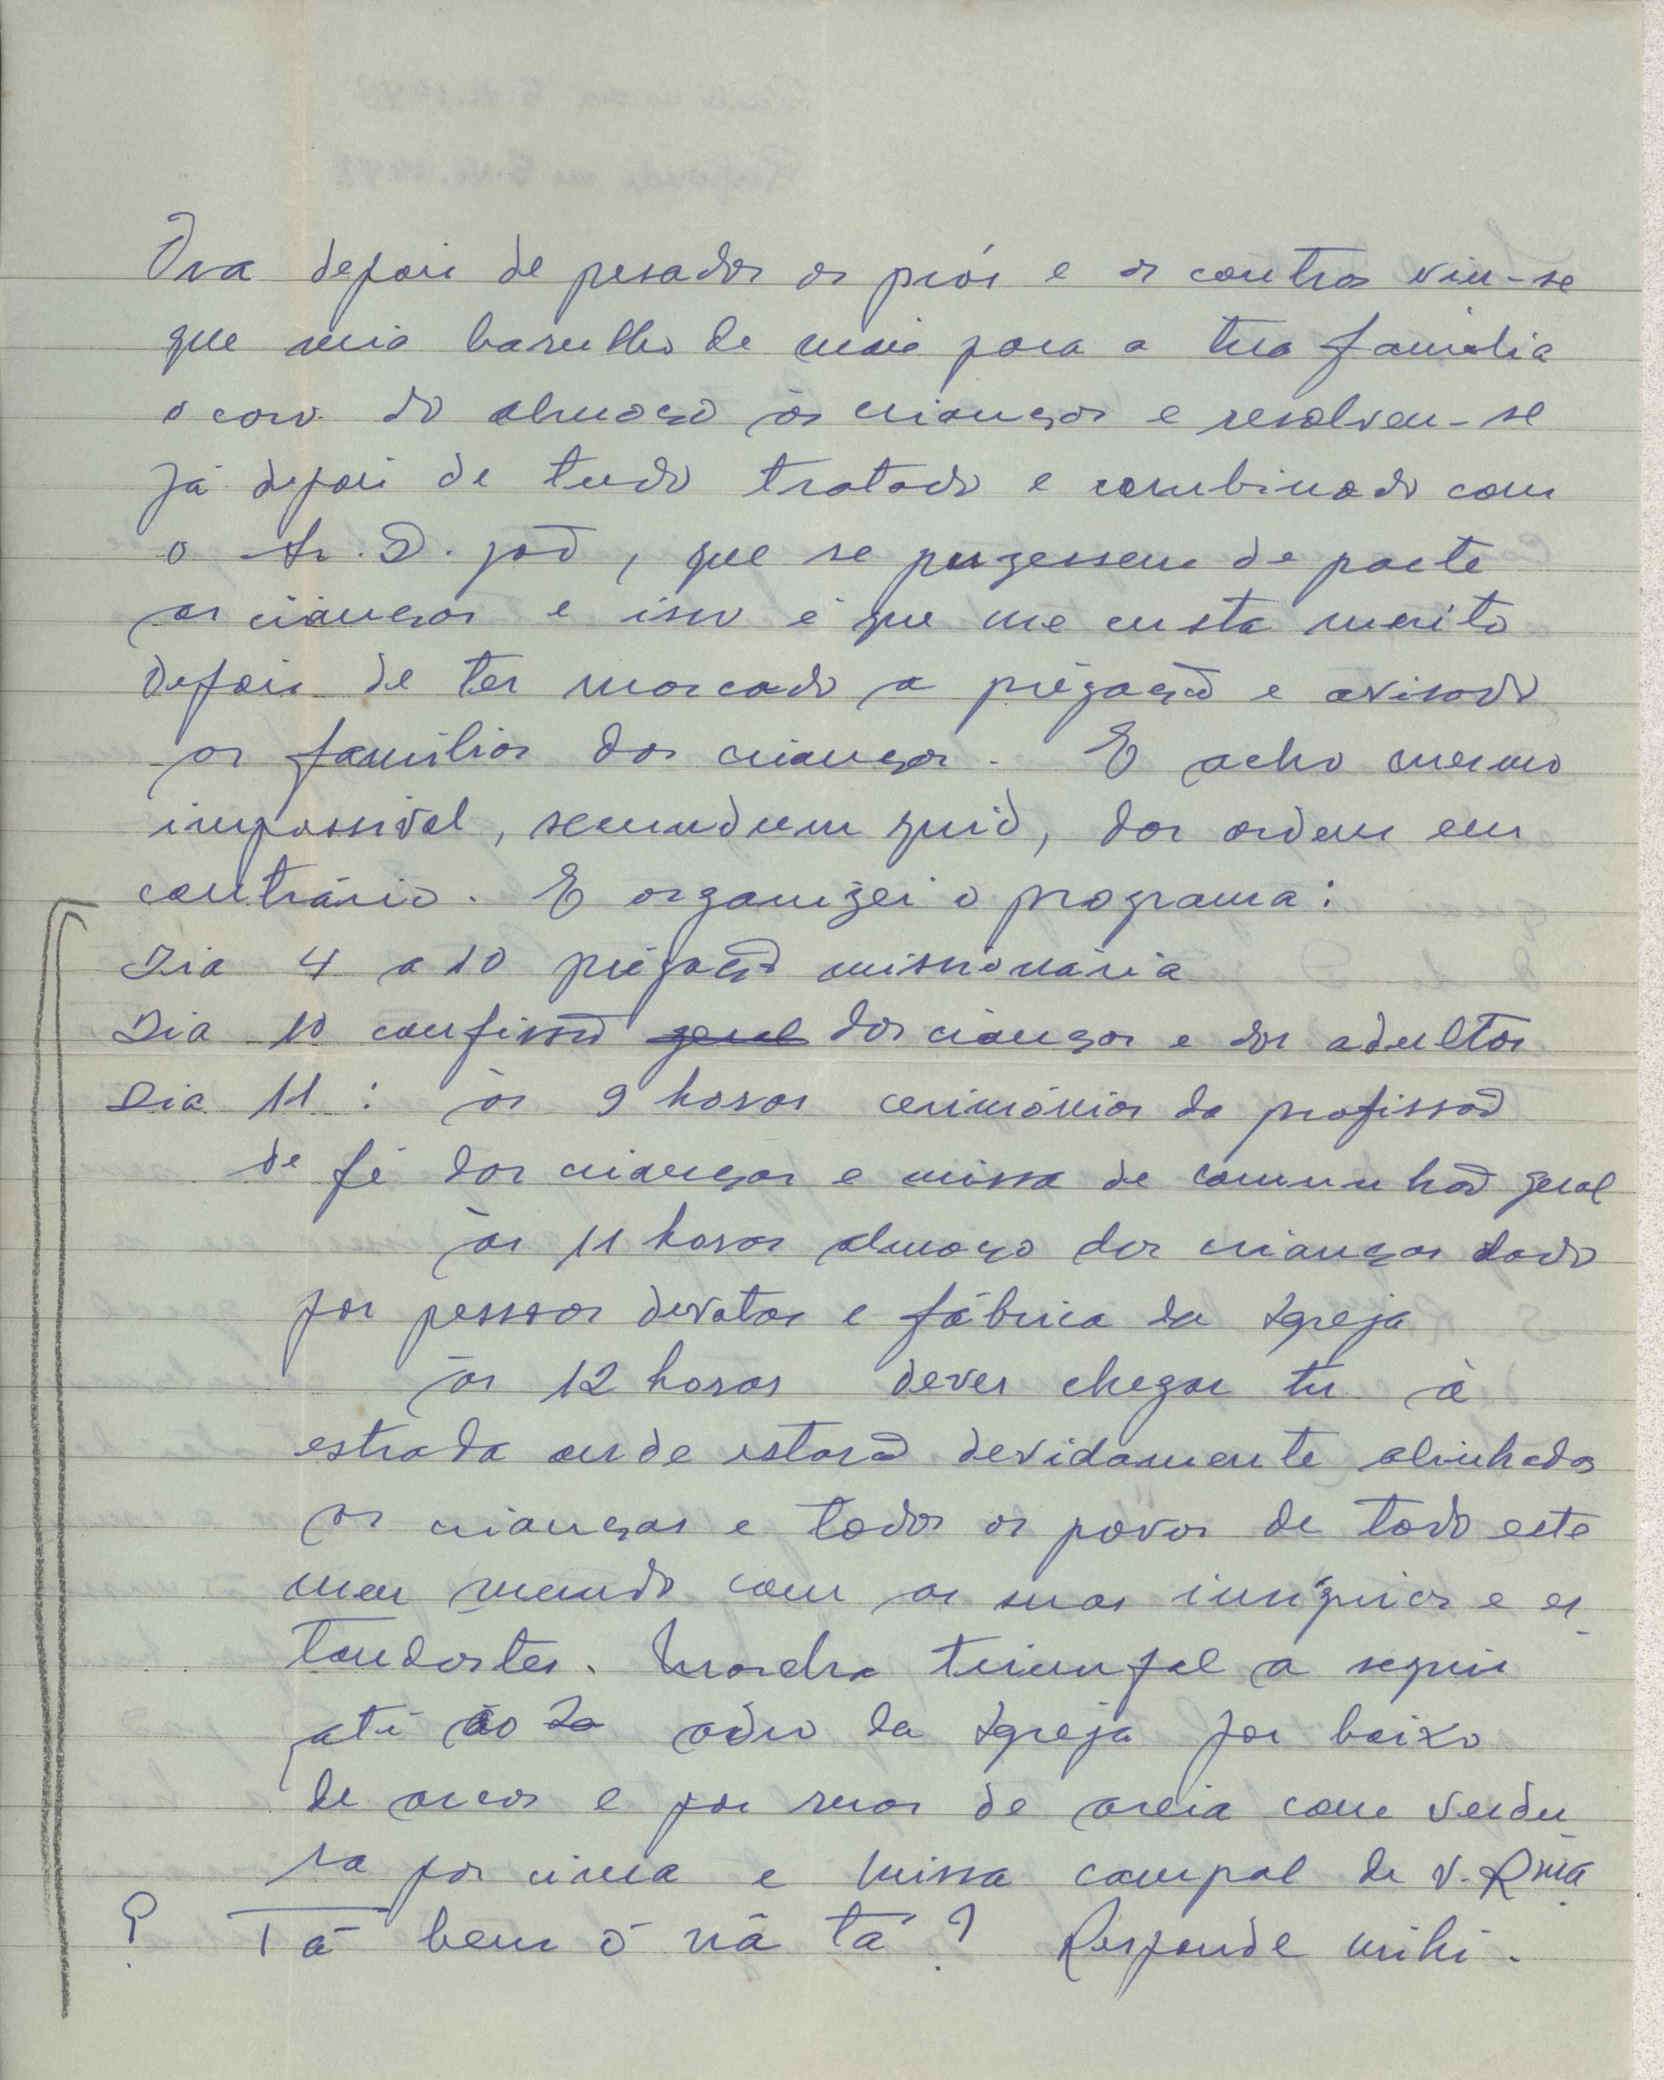 Ora depois de pesados os prós e os contras viu-se
que seria barulho de mais para a tua familia
o caso do almoço às crianças e resolveu-se
já depois de tudo tratado e combinado com
o Sr. D. João, que se puzessem de parte
as crianças e isso é que me custa muito
depois de ter marcado a prègação e avisado
as famílias das crianças. E acho mesmo
impossível, secundum quid, dar ordem em
contrário. E organizei o programa:
Dia 4 a 10 prègação missionária
Dia 10 confissão geral das crianças e dos adultos
Dia 11: às 9 horas cerimónias da profissão
de fé das crianças e missa de comunhão geral
às 11 horas almoço das crianças dado
por pessoas devotas e fábrica da Igreja
às 12 horas deves chegar tu à
estrada onde estarão devidamente alinhadas
as crianças e todos os povos de todo este
meu mundo com as suas insígnias e es-
tandartes. Marcha triunfal a seguir
até ao adro da Igreja por baixo
de arcos e por ruas de areia com verdu
ra por cima e Missa campal de V. Rma
? Tá bem ó nã tá? Responde mihi.